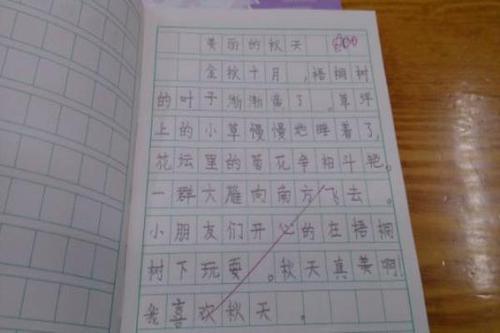 美丽的秋天 100
金秋十月,梧桐树
的叶子渐渐黄了。草坪
上的小草慢慢地睡着了,
花坛里的菊花争相斗艳。
一群大雁向南方飞去。
小朋友们开心的在梧桐
树下玩耍。秋天真美啊
我喜欢秋天。